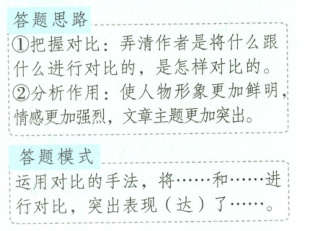 答题思路
①把握对比：弄清作者是将什么跟
什么进行对比的，是怎样对比的。
②分析作用：使人物形象更加鲜明，
情感更加强烈，文章主题更加突出。
答题模式
运用对比的手法，将……和……进
行对比，突出表现（达）了……。